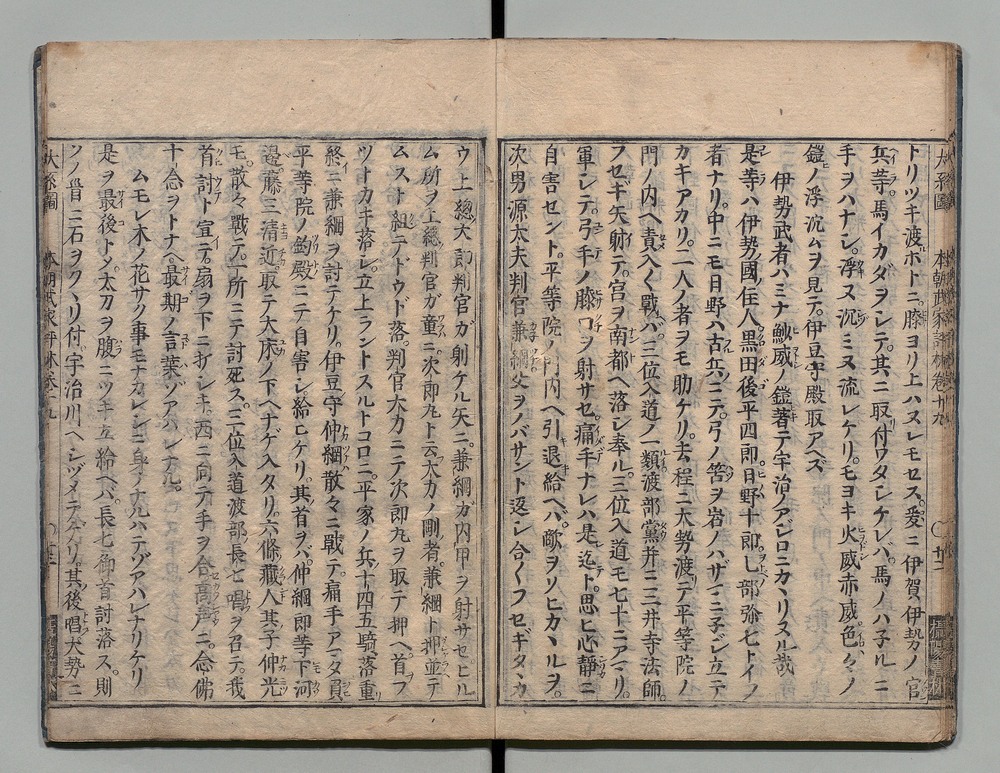 トリツキ渡ホトニ膝ヨリ上ハヌレモセス。爰ニ伊賀伊勢ノ官
兵等。馬イカダヲシテ。其ニ取付ワタシケレバ。馬ノハ子ルニ
手ヲハナシ。浮ヌ沉ミヌ流レケリ。モヨキ火威赤威色々ノ
鎧ノ浮沉ムヲ見テ。伊豆守殿取アヘズ
伊勢武者ハミナ鯎威ノ鎧著テ宇治ノアジロニカヽリヌル哉
是等ハ伊勢國ノ住人黒田後平四郎日野十郎乚部弥七トイフ
者ナリ。中ニモ日野ハ古兵ニテ。弓ノ筈ヲ岩ノハザマニ子ジ立テ
カキアカリ。二人ノ者ヲモ助ケリ。去程ニ大勢渡テ平等院ノ
門ノ内ヘ責入々戰バ。三位入道ノ一類渡部黨并ニ三井寺法師。
フセギ矢射テ。宮ヲ南都ヘ落シ奉ル。三位入道モ七十ニアマリ。
軍シテ。弓手ノ膝口ヲ射サセ。痛手ナレハ是迄ト。思ヒ心静ニ
自害セント。平等院ノ門内ヘ引退給ヘハ。敵ヲソヒカヽルヲ。
次男源太夫判官兼綱父ヲノバサント返シ合ノフセギタヽカ
大系圖 本朝武家評林卷十九 〇廿二
ウ上總大郎判官ガ射ケル矢ニ。兼綱ガ内甲ヲ射サセヒル
ム所ヲ上總判官ガ童ニ。次郎丸ト云大力ノ剛者。兼綱ト押並テ
ムスト組テドウド落。判官大力ニテ次郎丸ヲ取テ押ヘ首フ
ツトカキ落シ。立上ラントスルトコロニ。平家ノ兵十四五騎。落重リ
終ニ兼綱ヲ討テケリ。伊豆守仲綱散々ニ戰テ。痛手アマタ負
平等院ノ釣殿ニニテ自害シ給ヒケリ。其首ヲバ。仲綱郎等下河
邊藤三清近。取テ大床ノ下ヘナゲ入タリ。六條藏人其子仲光
モ。散々戰テ。一所ニテ討死ス。三位入道渡部長七唱ヲ召テ。我
首討ト宣テ。扇ヲ下ニ折シキ西ニ向テ手ヲ合高声ニ。念佛
十念ヲトナヘ。最期ノ言葉ゾアハレナル。
ムモレ木ノ花サク事モナカレシニ身ノナルハテゾアハレナリケリ
是ヲ最後トメ。太刀ヲ腹ニツキ立給ヘハ。長七御首討落ス。則
ソノ首ニ石ヲクヽリ付。宇治川ヘシヅメテケリ。其後唱大勢ニ
大系圖 本朝武家評林卷十九 〇廿二